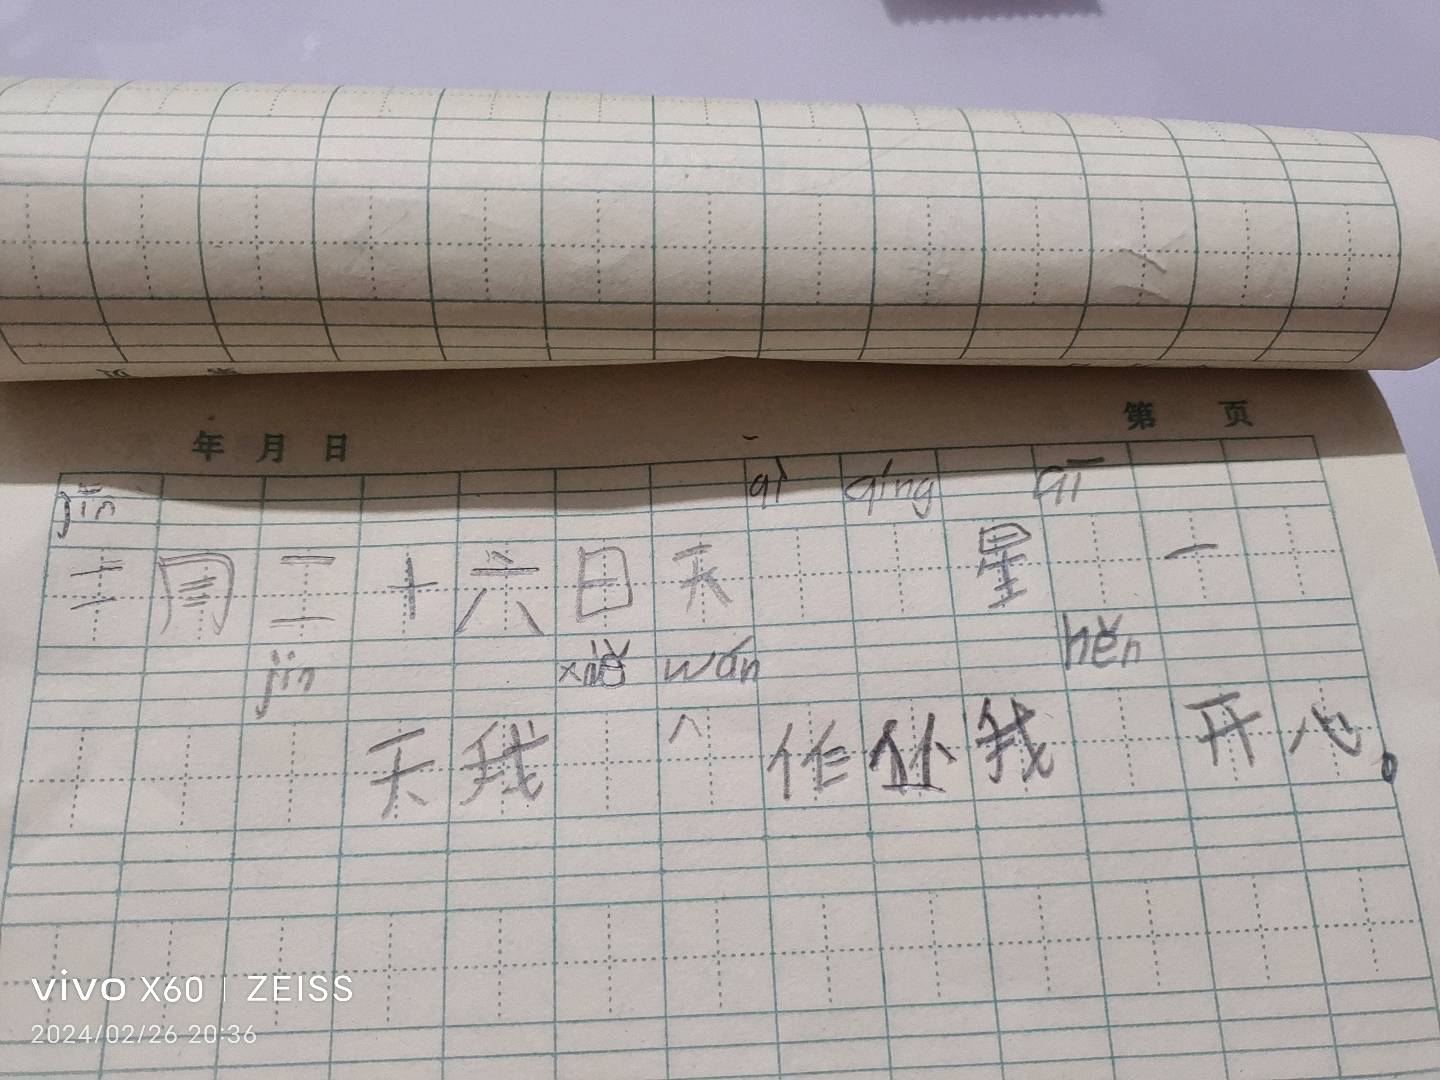 年 月 日 第 页
jīn qì qíng qī
二月二十六日天 星 一
jīn xiě wán hěn
天我 作业我 开心。
vivo X60 | ZEISS
2024/02/26 20:36